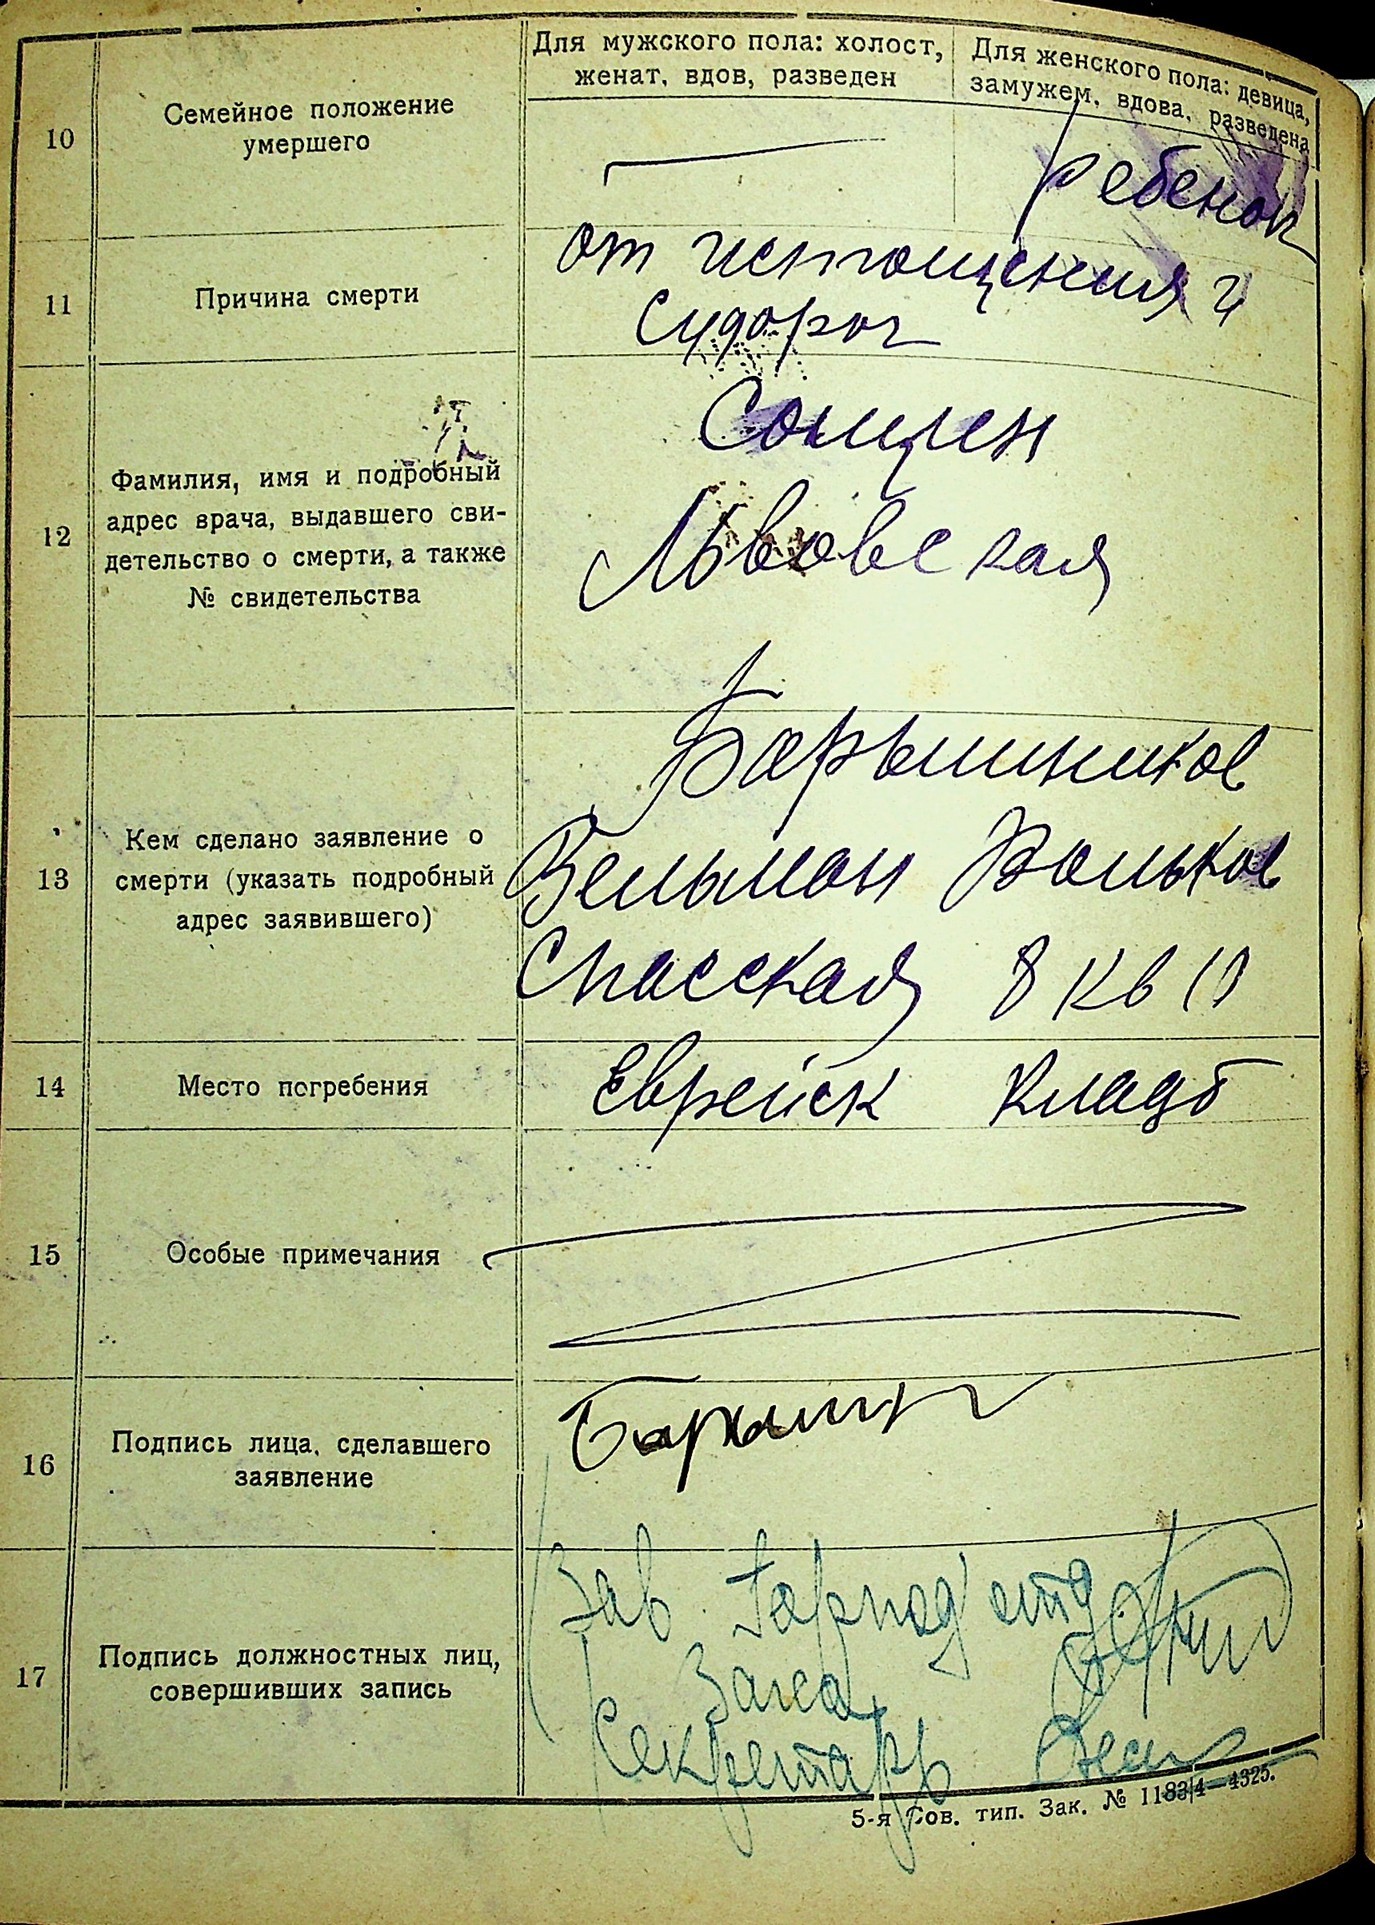 Для мужского пола: холост,
женат, вдов, разведен
Для женского пола: девица,
замужем, вдова, разведена
10
Семейное положение
умершего
ребенок
11
Причина смерти
от истощения и
судорог
12
Фамилия, имя и подробный
адрес врача, выдавшего сви-
детельство о смерти, а также
№ свидетельства
Львовская
13
Кем сделано заявление о
смерти (указать подробный
адрес заявившего)
Барышников
Зельман Вольков
Спасская 8 кв 10
14
Место погребения
Еврейск кладб
15
Особые примечания
16
Подпись лица, сделавшего
заявление
17
Подпись должностных лиц,
совершивших запись
Зав.
Загса
Секретарь
5-я Сов. тип. Зак. № 1183/4—4325.